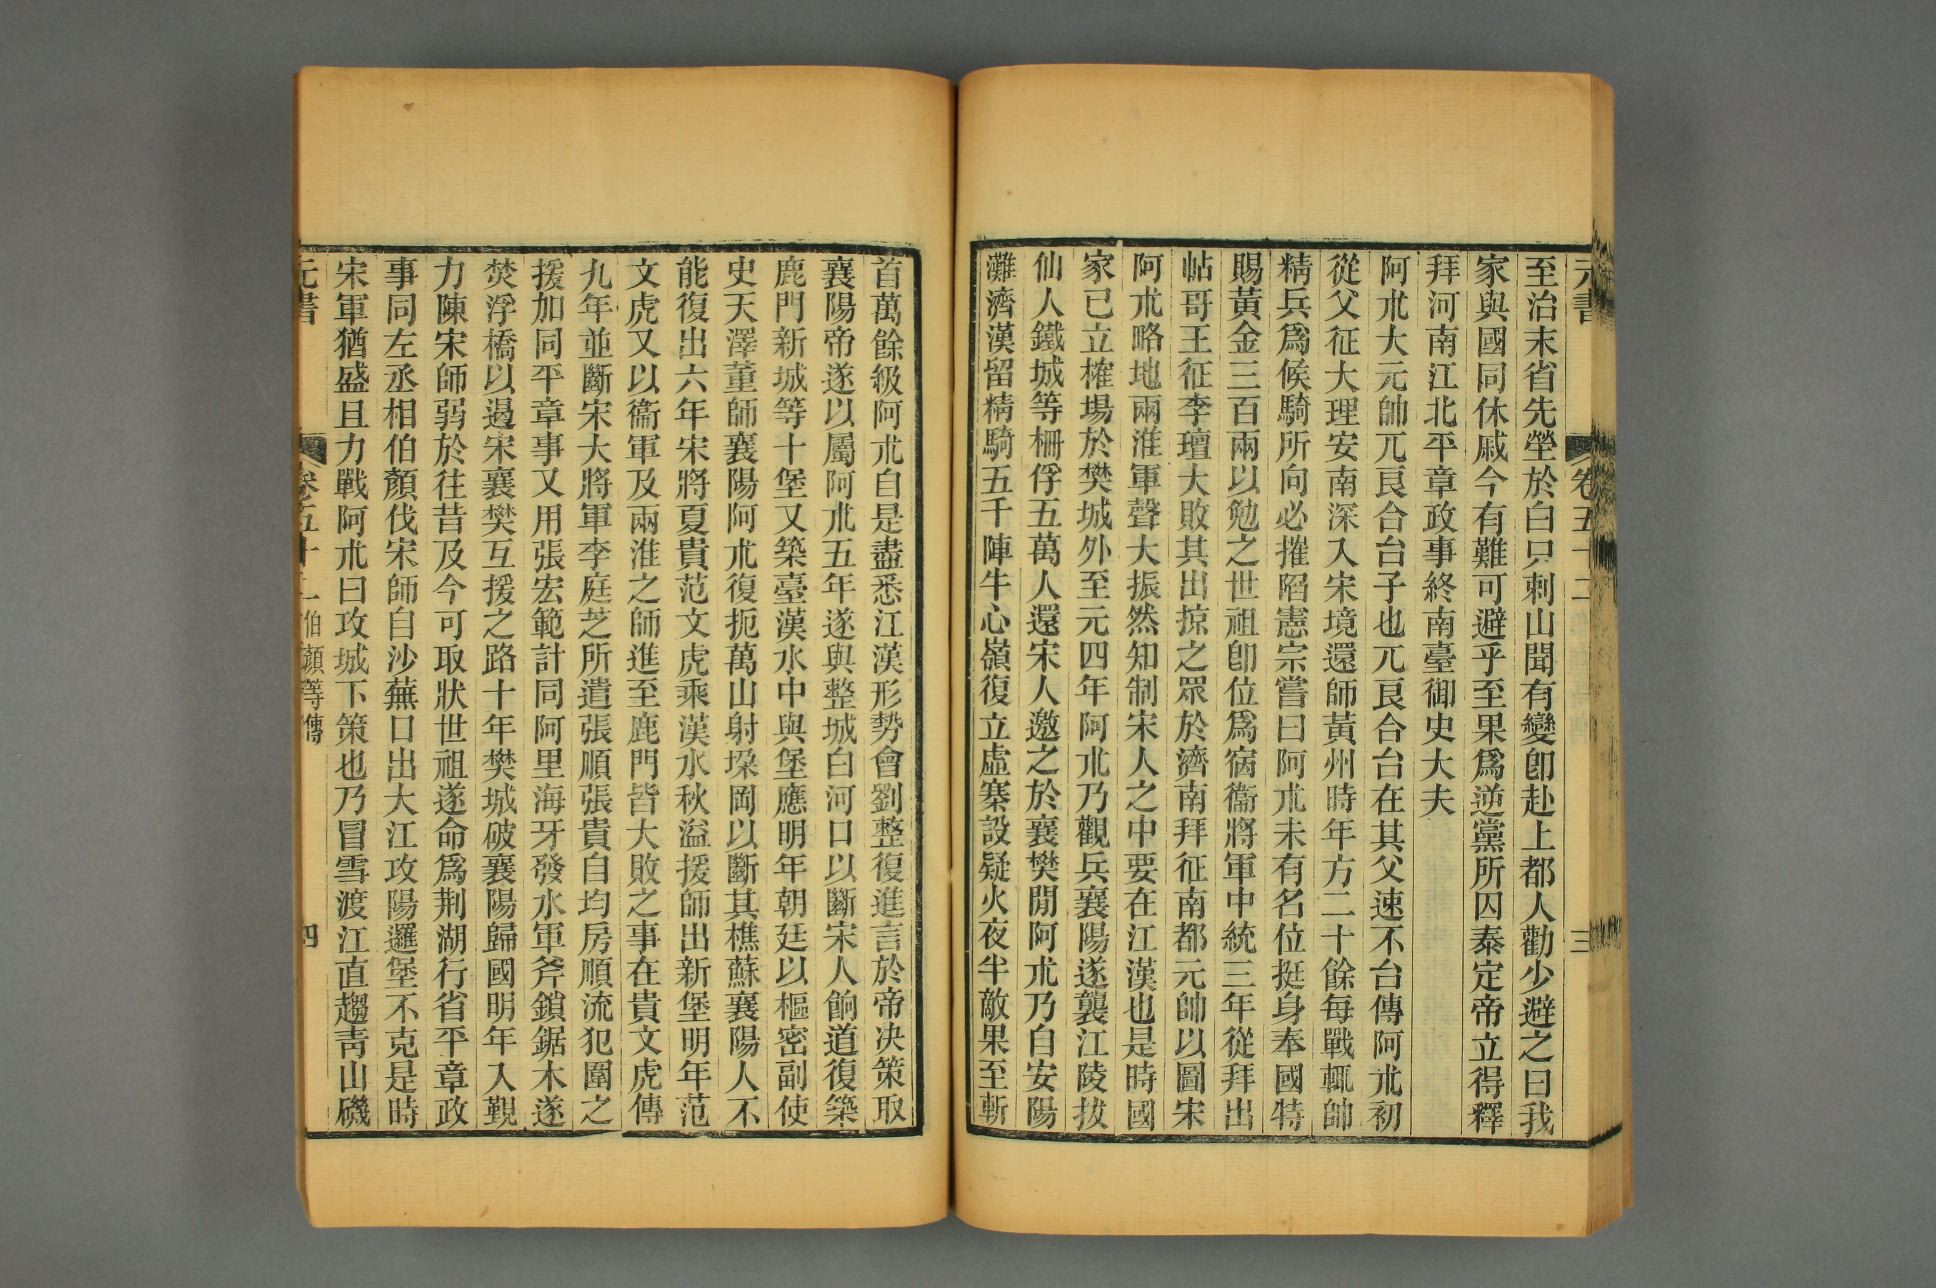 元書 卷五十二 三
至治末省先塋於白只剌山聞有變卽赴上都人勸少避之曰我
家與國同休戚今有難可避乎至果爲逆黨所囚泰定帝立得釋
拜河南江北平章政事終南臺御史大夫
阿朮大元帥兀良合台子也兀良合台在其父速不台傳阿朮初
從父征大理安南深入宋境還師黃州時年方二十餘每戰輒帥
精兵爲候騎所向必摧陷憲宗嘗曰阿朮未有名位挺身奉國特
賜黃金三百兩以勉之世祖卽位爲宿衞將軍中統三年從拜出
帖哥王征李璮大敗其出掠之眾於濟南拜征南都元帥以圖宋
阿朮略地兩淮軍聲大振然知制宋人之中要在江漢也是時國
家已立榷場於樊城外至元四年阿朮乃觀兵襄陽遂襲江陵拔
仙人鐵城等柵俘五萬人還宋人邀之於襄樊閒阿朮乃自安陽
灘濟漢留精騎五千陣牛心嶺復立虛寨設疑火夜半敵果至斬
首萬餘級阿朮自是盡悉江漢形勢會劉整復進言於帝决策取
襄陽帝遂以屬阿朮五年遂與整城白河口以斷宋人餉道復築
鹿門新城等十堡又築臺漢水中與堡應明年朝廷以樞密副使
史天澤董師襄陽阿朮復扼萬山射垜岡以斷其樵蘇襄陽人不
能復出六年宋將夏貴范文虎乘漢水秋溢援師出新堡明年范
文虎又以衞軍及兩淮之師進至鹿門皆大敗之事在貴文虎傳
九年並斷宋大將軍李庭芝所遣張順張貴自均房順流犯圍之
援加同平章事又用張宏範計同阿里海牙發水軍斧鎖鋸木遂
焚浮橋以遏宋襄樊互援之路十年樊城破襄陽歸國明年入覲
力陳宋師弱於往昔及今可取狀世祖遂命爲荆湖行省平章政
事同左丞相伯顏伐宋師自沙蕪口出大江攻陽邏堡不克是時
宋軍猶盛且力戰阿朮曰攻城下策也乃冒雪渡江直趨靑山磯
元書 卷五十二 伯顏等傳 四